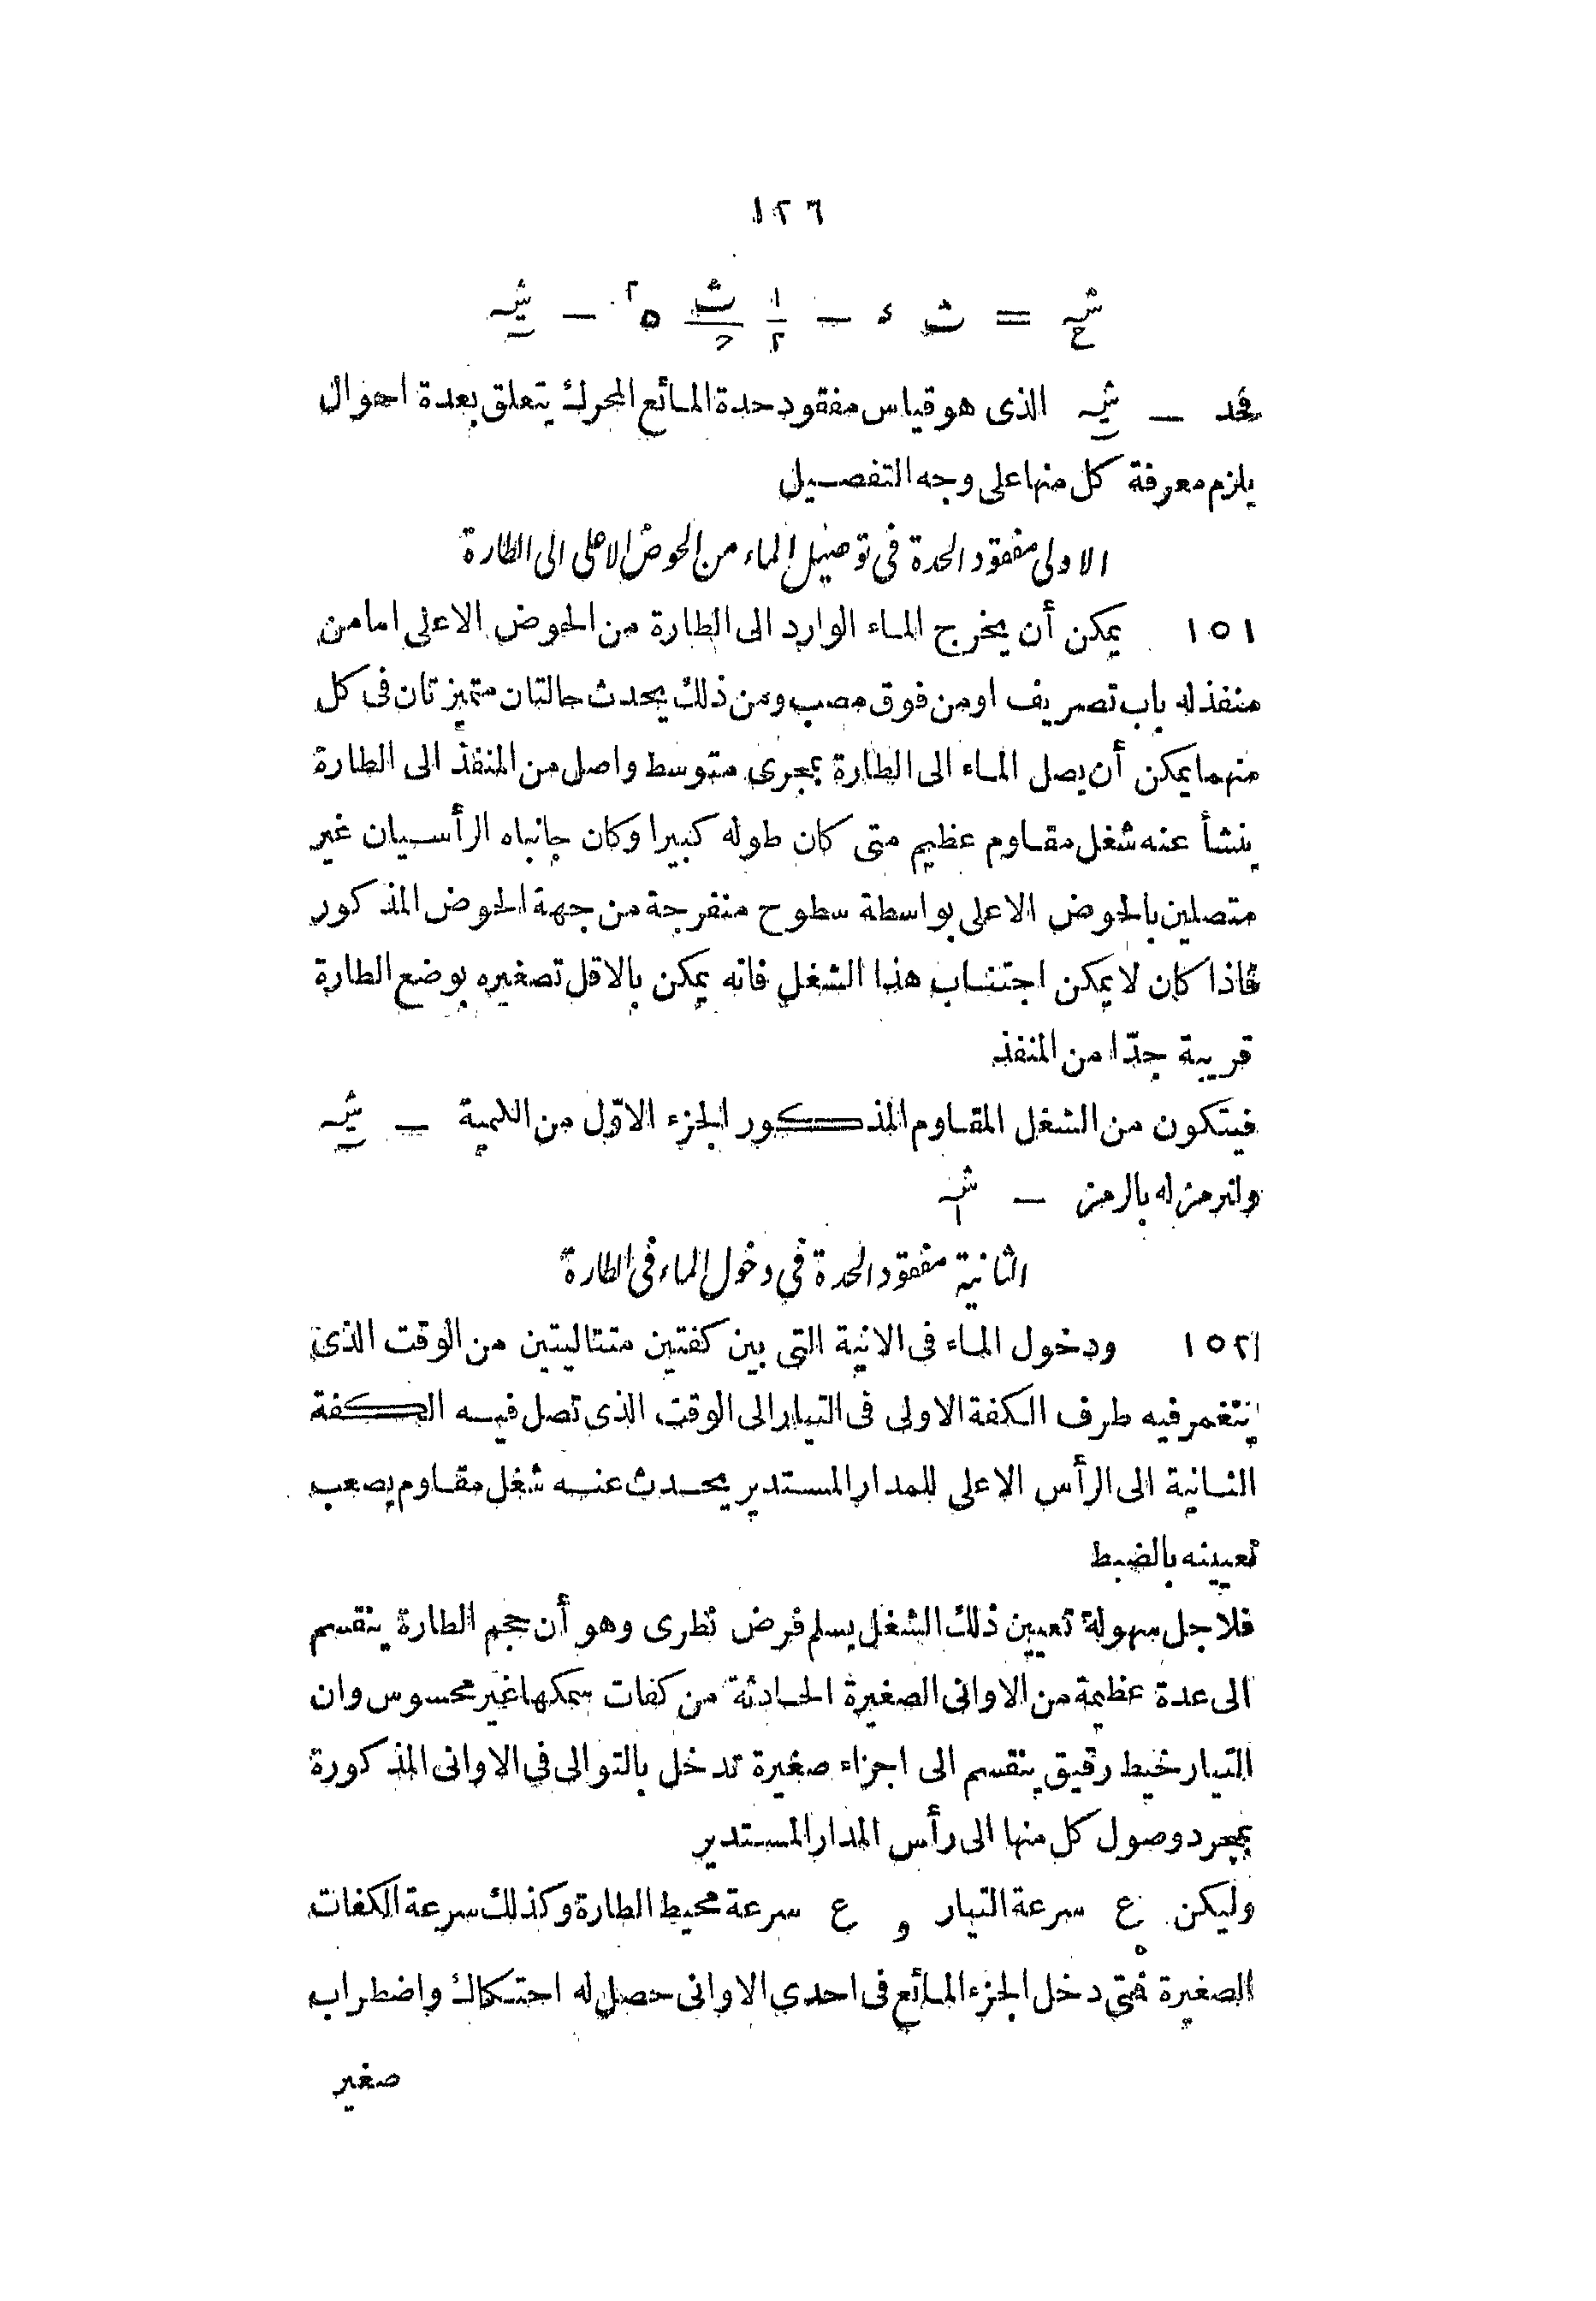 ١٢٦
شـح = ث ء − ١/٢ ث/ح ه٢ − شـ
فحد − شـ الذى هو قياس مفقود حدة المائع المحرك يتعلق بعدة احوال
يلزم معرفة كل منها على وجه التفصيل
الاولى مفقود الحدة فى توصيل الماء من الحوض الاعلى الى الطارة
١٥١ يمكن أن يخرج الماء الوارد الى الطارة من الحوض الاعلى اما من
منفذ له باب تصريف او من فوق مصب ومن ذلك يحدث حالتان متميزتان فى كل
منهما يمكن أن يصل الماء الى الطارة بمجرى متوسط واصل من المنفذ الى الطارة
ينشأ عنه شغل مقاوم عظيم متى كان طوله كبيرا وكان جانباه الرأسيان غير
متصلين بالحوض الاعلى بواسطة سطوح منفرجة من جهة الحوض المذكور
فاذا كان لا يمكن اجتناب هذا الشغل فانه يمكن بالاقل تصغيره بوضع الطارة
قريبة جدّا من المنفذ
فيتكون من الشغل المقاوم المذكور الجزء الاوّل من الكمية − شـ
ولنرمز له بالرمز − شـ١
الثانية مفقود الحدة فى دخول الماء فى الطارة
١٥٢ ودخول الماء فى الانية التى بين كفتين متتاليتين من الوقت الذى
ينغمر فيه طرف الكفة الاولى فى التيار الى الوقت الذى تصل فيه الكفة
الثانية الى الرأس الاعلى للمدار المستدير يحدث عنه شغل مقاوم يصعب
تعيينه بالضبط
فلاجل سهولة تعيين ذلك الشغل يسلم فرض نظرى وهو أن حجم الطارة ينقسم
الى عدة عظيمة من الاوانى الصغيرة الحادثة من كفات سمكها غير محسوس وان
التيار خيط رقيق ينقسم الى اجزاء صغيرة تدخل بالتوالى فى الاوانى المذكورة
بمجرد وصول كل منها الى رأس المدار المستدير
وليكن ع سرعة التيار و ع سرعة محيط الطارة وكذلك سرعة الكفات
الصغيرة فمتى دخل الجزء المائع فى احدى الاوانى حصل له احتكاك واضطراب
صغير